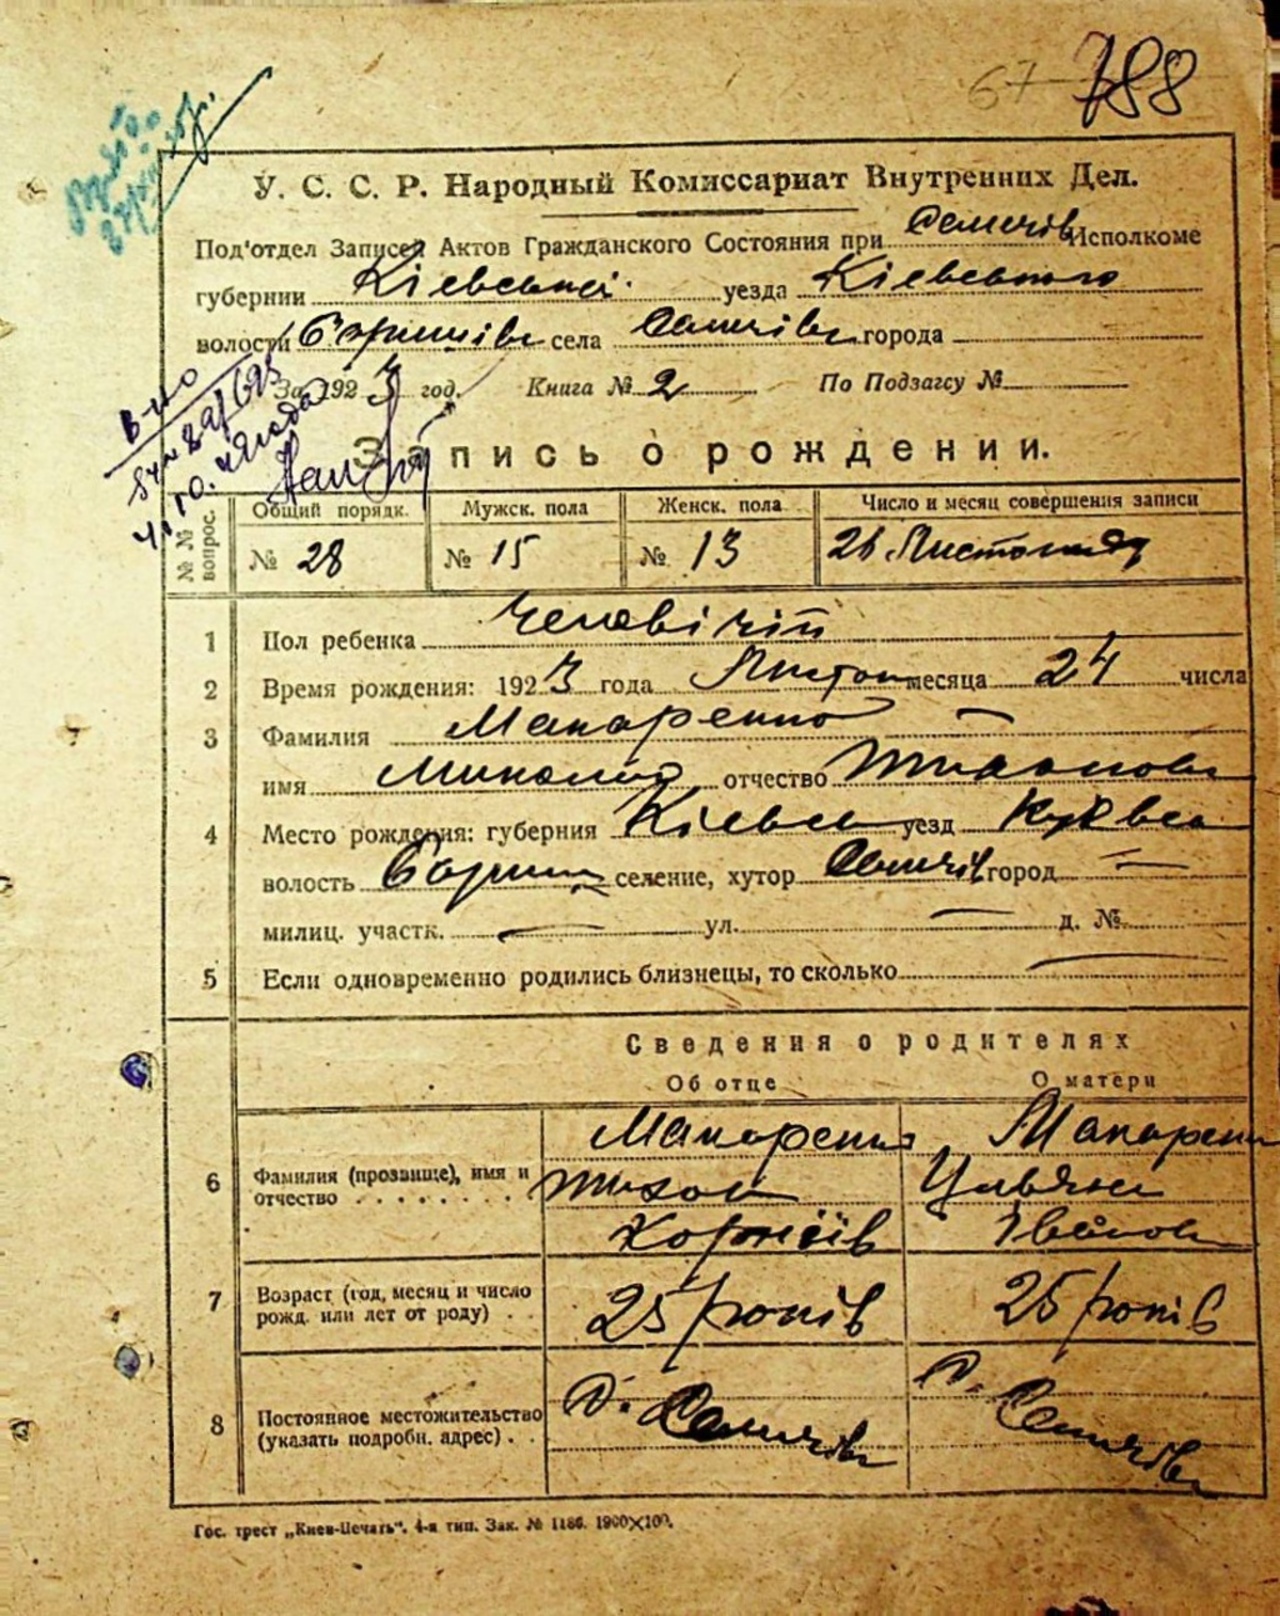 67 788
У. С. С. Р. Народный Комиссариат Внутренних Дел.
Под'отдел Записей Актов Гражданского Состояния при Семичів Исполкоме
губернии Кіевської уезда Кіевського
волости села Семичів города
За 1923 год. Книга № 2 По Подзагсу №
Запись о рождении.
№ № вопрос. Общий порядк. Мужск. пола Женск. пола Число и месяц совершения записи
№ 28 № 15 № 13 26 Листопаду
1 Пол ребенка чоловічій
2 Время рождения: 1923 года Листоп месяца 24 числа
3 Фамилия Макаренко —
имя Миколай отчество Тихонов
4 Место рождения: губерния Кіевск уезд
волость селение, хутор Семичів город —
милиц. участк. — ул. — д. №
5 Если одновременно родились близнецы, то сколько —
Сведения о родителях
Об отце О матери
6 Фамилия (прозвище), имя и отчество . . . . . . . .
Макаренко Макаренк
Тихон Ульяна
Корніїв Іванов
7 Возраст (год, месяц и число рожд. или лет от роду) . .
25 років 25 років
8 Постоянное местожительство (указать подробн. адрес) . .
с. Семичів с. Семичів
Гос. трест „Киев-Печать". 4-я тип. Зак. № 1186. 1900×100.